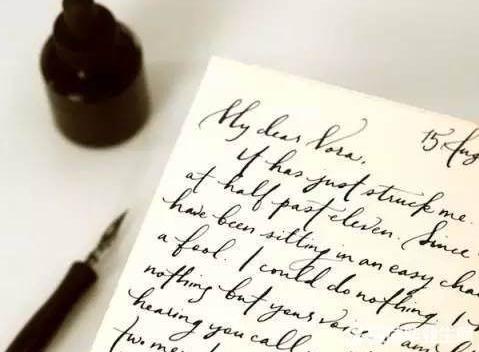 My dear Nora, 15 Aug
It has just struck me.
at half past eleven. Since
have been sitting in an easy cha
a fool. I could do nothing. I
nothing but your voice. and
hearing you call
two me